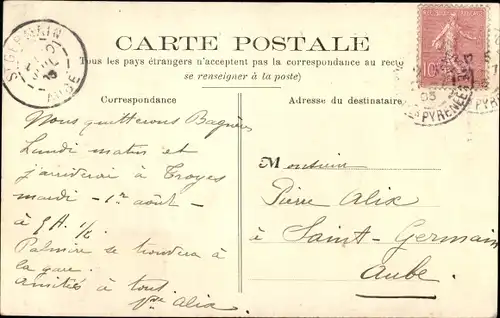 CARTE POSTALE
Tous les pays étrangers n'acceptent pas la correspondance au recto
se renseigner à la poste)
Correspondance
Adresse du destinataire
Nous quitterons Bagnères
Lundi matin et
j'arriverai à Troyes
mardi - 1er août -
à
Palmire se trouvera à
la gare.
Amitiés à tous
Alix
Monsieur
Pierre Alix
à Saint-Germain
Aube.
ST GERMAIN
AUBE
10
PYRENEES